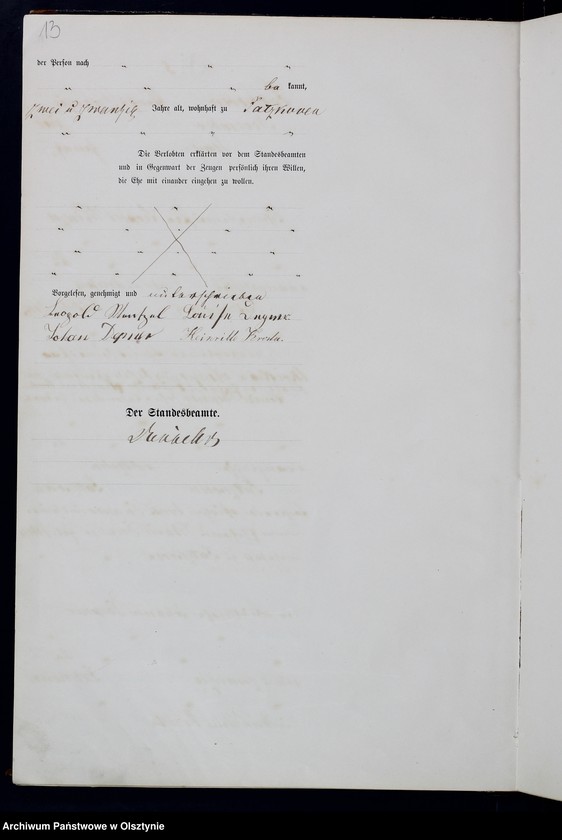 13
der Person nach „ „ „
„ „ „ be kannt,
zwei u zwanzig Jahre alt, wohnhaft zu
„ „ „ „
Die Verlobten erklärten vor dem Standesbeamten
und in Gegenwart der Zeugen persönlich ihren Willen,
die Ehe mit einander eingehen zu wollen.
Vorgelesen, genehmigt und unterschrieben
Leopold Louise
Der Standesbeamte.
Archiwum Państwowe w Olsztynie